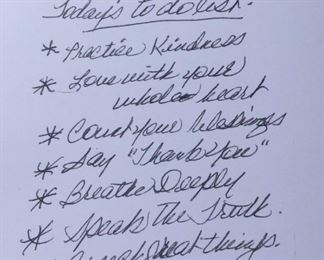 Today's to do list.
* Practice Kindness
* Love with your
whole heart
* Count your blessings
* Say "Thank You"
* Breathe Deeply
* Speak The Truth.
great things.